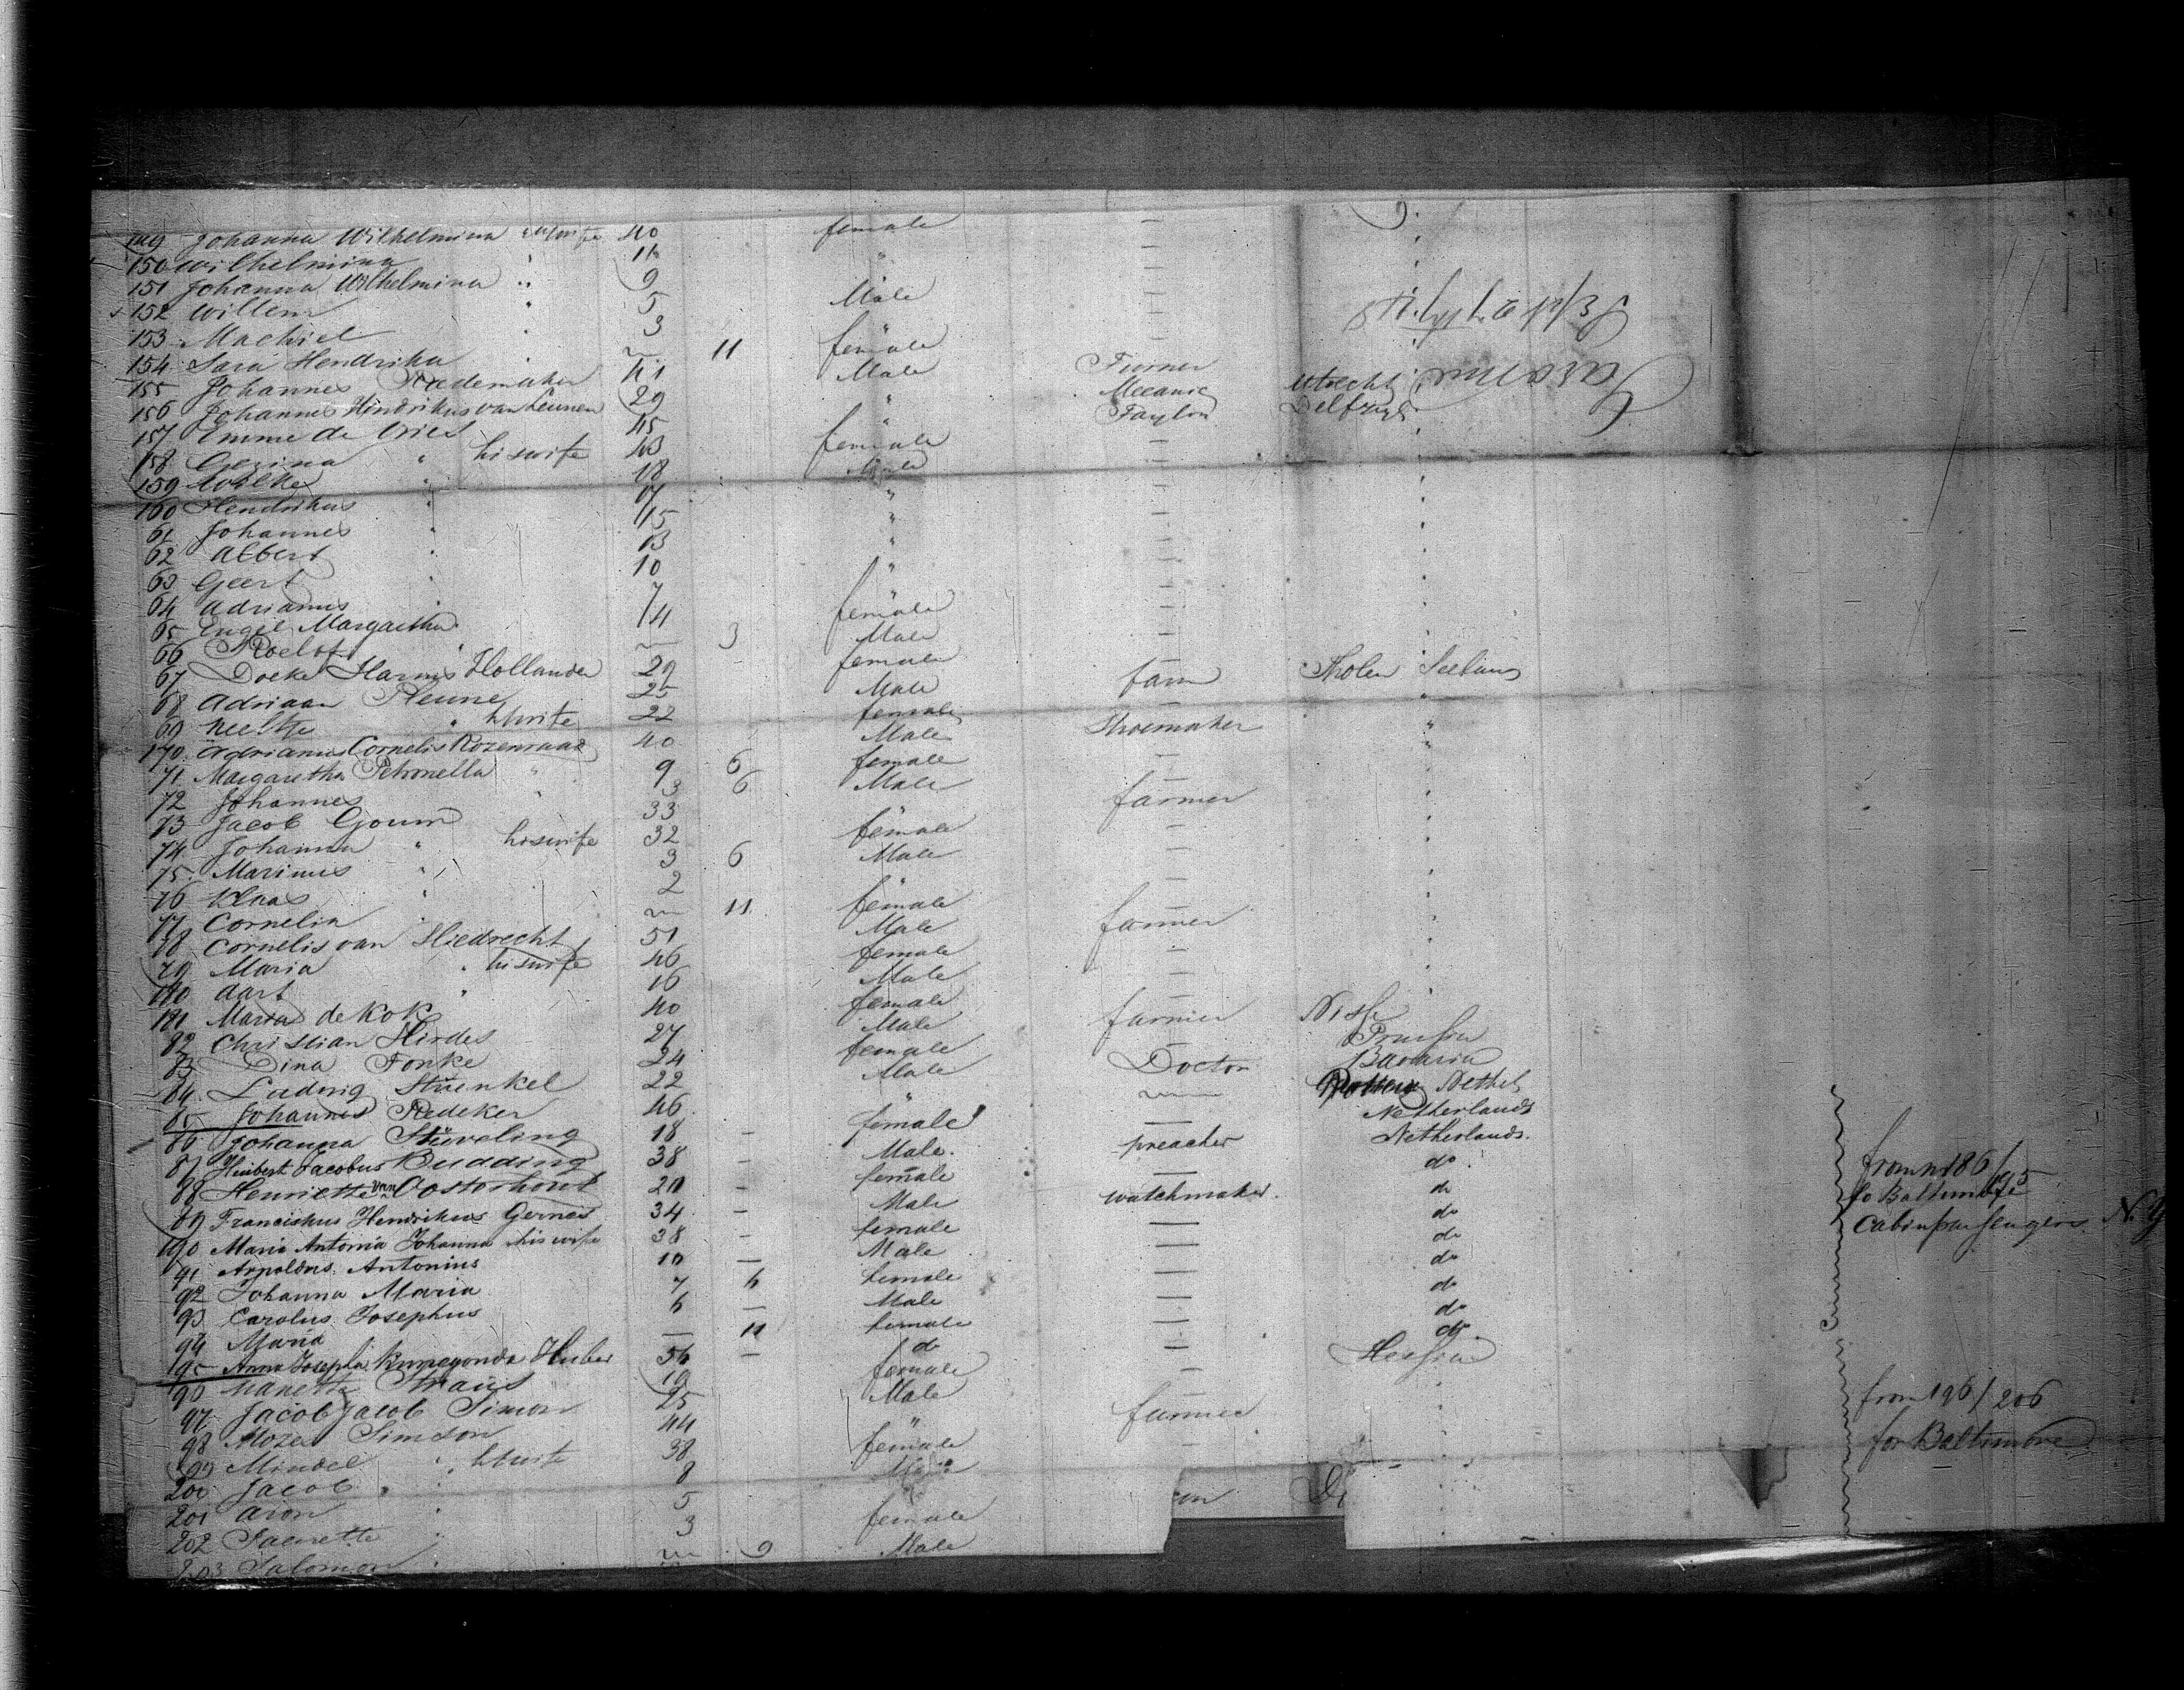 149 Johanna Wilhelmina " his wife 40 female —
150 Wilhelmina " 11 " —
151 Johanna Wilhelmina " 9 " —
152 Willem " 5 Male —
153 Machiel " 3 " —
154 Sara Hendrika " 11 female —
155 Johannes Rademaker 41 Male Turner Utrecht
156 Johannes Hindrikus van Leunen 29 " Mecanic
157 Emme de Vries 45 " Taylor Delfzyl
158 Gezina " his wife 43 female —
159 Wilke " 18 Male —
160 Hendrikus " 17 " —
61 Johannes " 15 " —
62 Albert " 13 " —
63 Geert " 10 " —
64 Adrianus " 7 " —
65 Engel Margaretha " 4 female —
66 Roelof " 3 Male —
67 Doeke Harms Hollander 29 female
68 Adriaan Pleune 25 Male farm Tholen Seeland
69 Neeltje " his wife 22 female — "
170 Adrianus Cornelis Rozenraad 40 Male Shoemaker "
71 Margaretha Petronella " 9 6 female —
72 Johannes " 3 6 Male —
73 Jacob Goum 33 " farmer
74 Johanna " his wife 32 female —
75 Marinus " 3 6 Male —
76 Klaas " 2 " —
77 Cornelia " 11 female —
78 Cornelis van Sliedrecht 51 Male farmer
79 Maria " his wife 46 female —
180 Aart " 16 Male —
181 Maria de Kok 40 female —
82 Christian Hirdes 27 Male farmer
83 Dina Fonke 24 female — Prussia
84 Ludwig Stüenkel 22 Male Doctor Bavaria
85 Johannes Redeker 46 " Nethel
86 Johanna Stüveling 18 — female — Netherlands
87 Huibert Jacobus Budding 38 — Male preacher Netherlands
88 Henriette van Oosterhout 20 — female — do
89 Franciskus Hendrikus Gernes 34 — Male watchmaker do
190 Maria Antonia Johanna his wife 38 — female — do
91 Arnoldus Antonius 10 — Male — do
92 Johanna Maria 7 6 female — do
93 Carolus Josephus 6 — Male — do
94 Maria — 11 female — do
195 Anna Josepha Kunegonda Huber 56 — do — do
96 Nanette Straus 19 female — Hessia
97 Jacob Jacob Simon 25 Male
98 Mozes Simson 44 " farmer
99 Mindel " his wife 38 female —
200 Jacob " 8 Male
201 Aron " 5 "
202 Jaenette " 3 female
203 Salomon " 9 Male
from 186/195
to Baltimore
Cabin passengers N.Y
from 196/206
for Baltimore